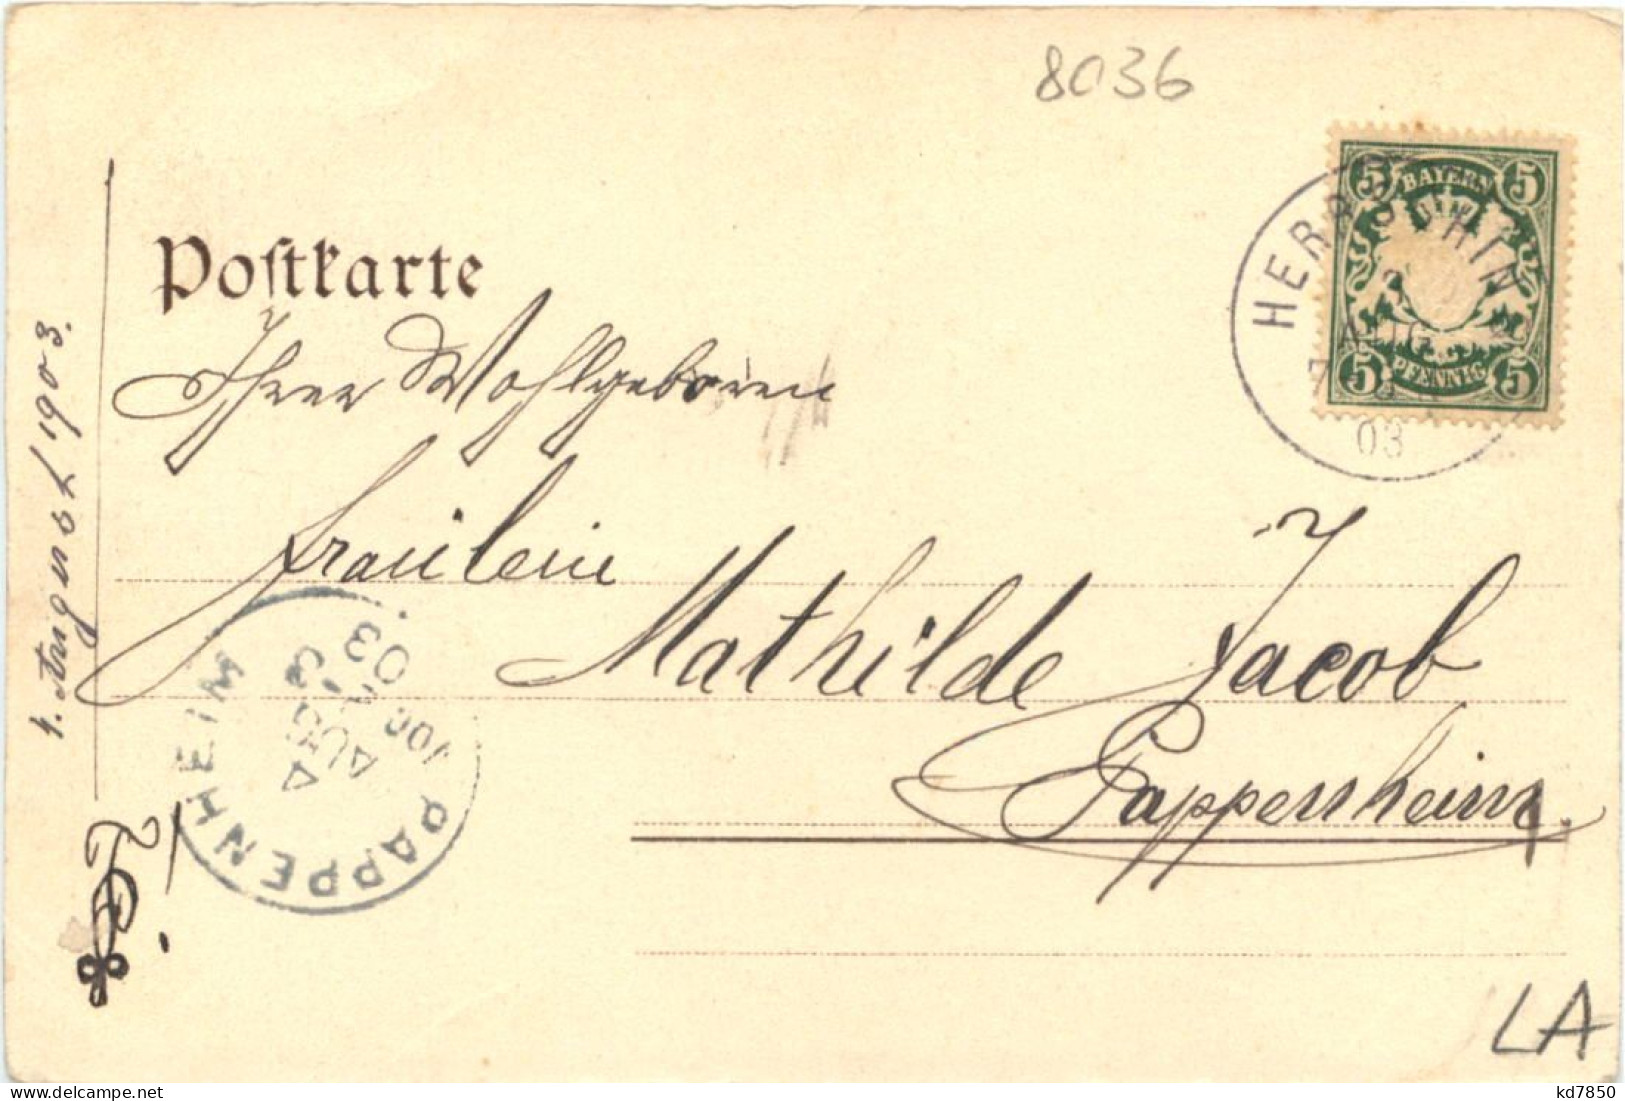 8036
5 BAYERN 5
5 PFENNIG 5
HERRSCHING
AUG
03
Postkarte
Ihrer Wohlgeboren
Fräulein
Mathilde Jacob
Pappenheim.
4. August 1903.
PAPPENHEIM
3 AUG
03
LA
www.delcampe.net
kd7850